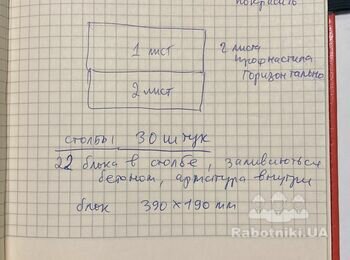 покрасить
1 лист
2 листа
профнастила
Горизонтально
2 лист
столбы 30 штук
22 блока в столбе, заливаються
бетоном, арматура внутри
блок 390 х 190 мм
Rabotniki.UA